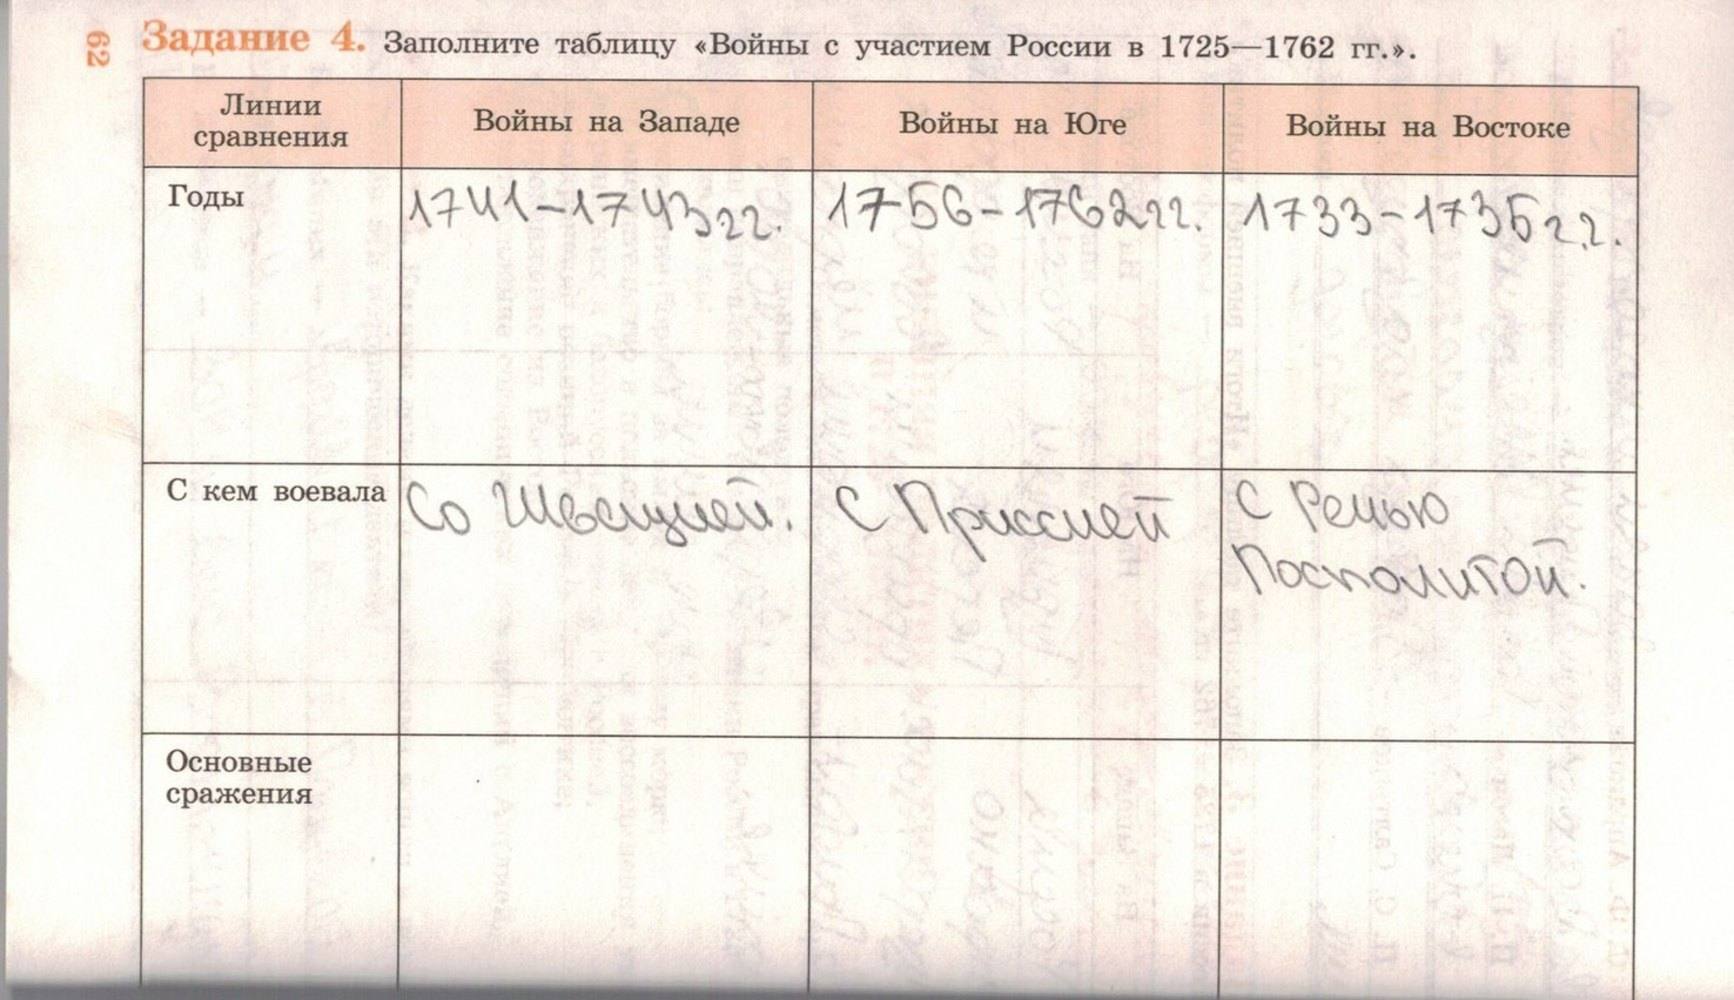 62
Задание 4. Заполните таблицу «Войны с участием России в 1725—1762 гг.».
Линии
сравнения
Войны на Западе
Войны на Юге
Войны на Востоке
Годы
1741-1743гг.
1756-1762гг.
1733-1735г.г.
С кем воевала
Со Швецией.
С Пруссией
С Речью
Посполитой.
Основные
сражения